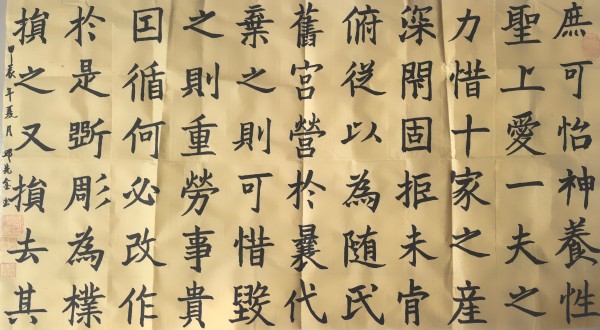 庶可怡神養性
聖上愛一夫之
力惜十家之産
深閇固拒未肯
俯從以為随氏
舊宮營於曩代
棄之則可惜毀
之則重勞事貴
囙循何必改作
於是斲彫為樸
損之又損去其
甲辰年夏月